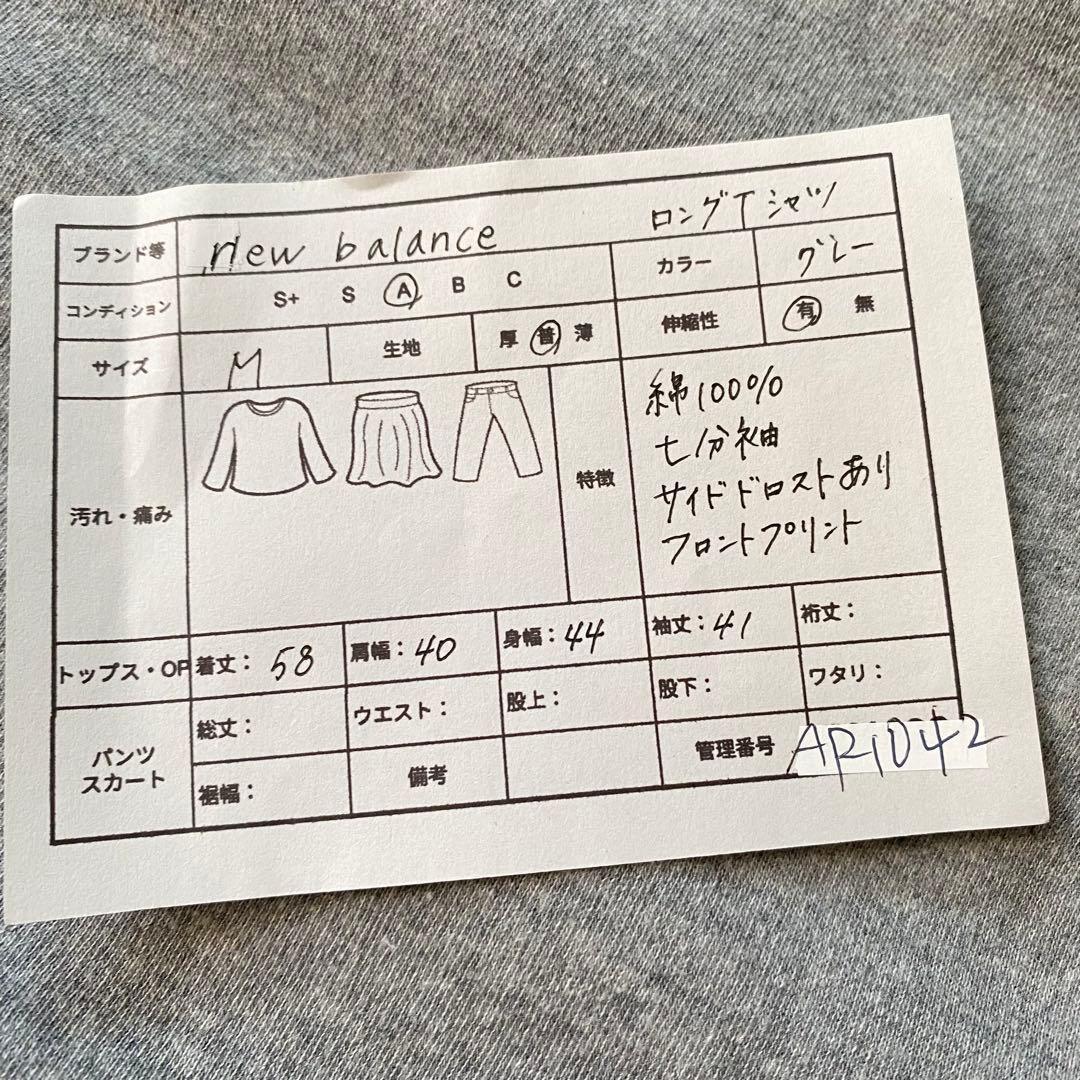 ブランド等 new balance ロングTシャツ
コンディション S+ S A B C カラー グレー
サイズ M 生地 厚 普 薄 伸縮性 有 無
汚れ・痛み 特徴
綿100%
七分袖
サイドドロストあり
フロントプリント
トップス・OP 着丈：58 肩幅：40 身幅：44 袖丈：41 裄丈：
パンツ
スカート
総丈： ウエスト： 股上： 股下： ワタリ：
裾幅： 備考 管理番号 AP1042